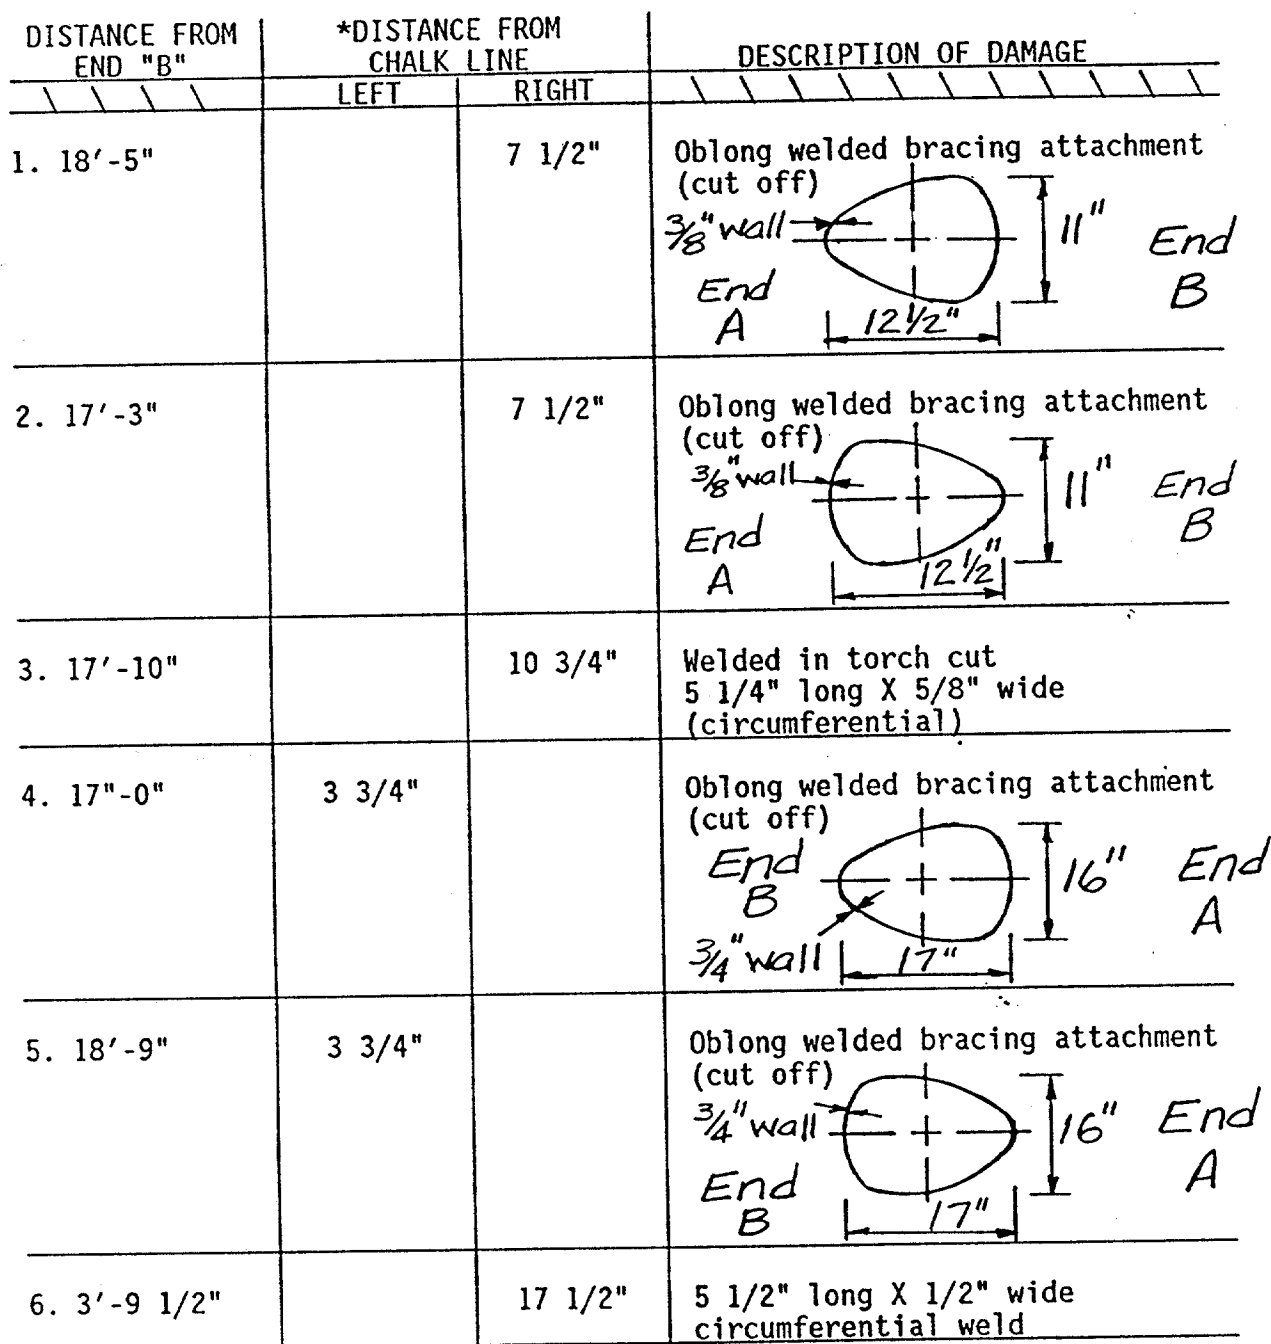 DISTANCE FROM
END "B"
*DISTANCE FROM
CHALK LINE
DESCRIPTION OF DAMAGE
LEFT
RIGHT
1. 18'-5"
7 1/2"
Oblong welded bracing attachment
(cut off)
3/8" wall
11"
End
B
End
A
12 1/2"
2. 17'-3"
7 1/2"
Oblong welded bracing attachment
(cut off)
3/8" wall
11"
End
B
End
A
12 1/2"
3. 17'-10"
10 3/4"
Welded in torch cut
5 1/4" long X 5/8" wide
(circumferential)
4. 17"-0"
3 3/4"
Oblong welded bracing attachment
(cut off)
End
B
16"
End
A
3/4" wall
17"
5. 18'-9"
3 3/4"
Oblong welded bracing attachment
(cut off)
3/4" wall
16"
End
A
End
B
17"
6. 3'-9 1/2"
17 1/2"
5 1/2" long X 1/2" wide
circumferential weld